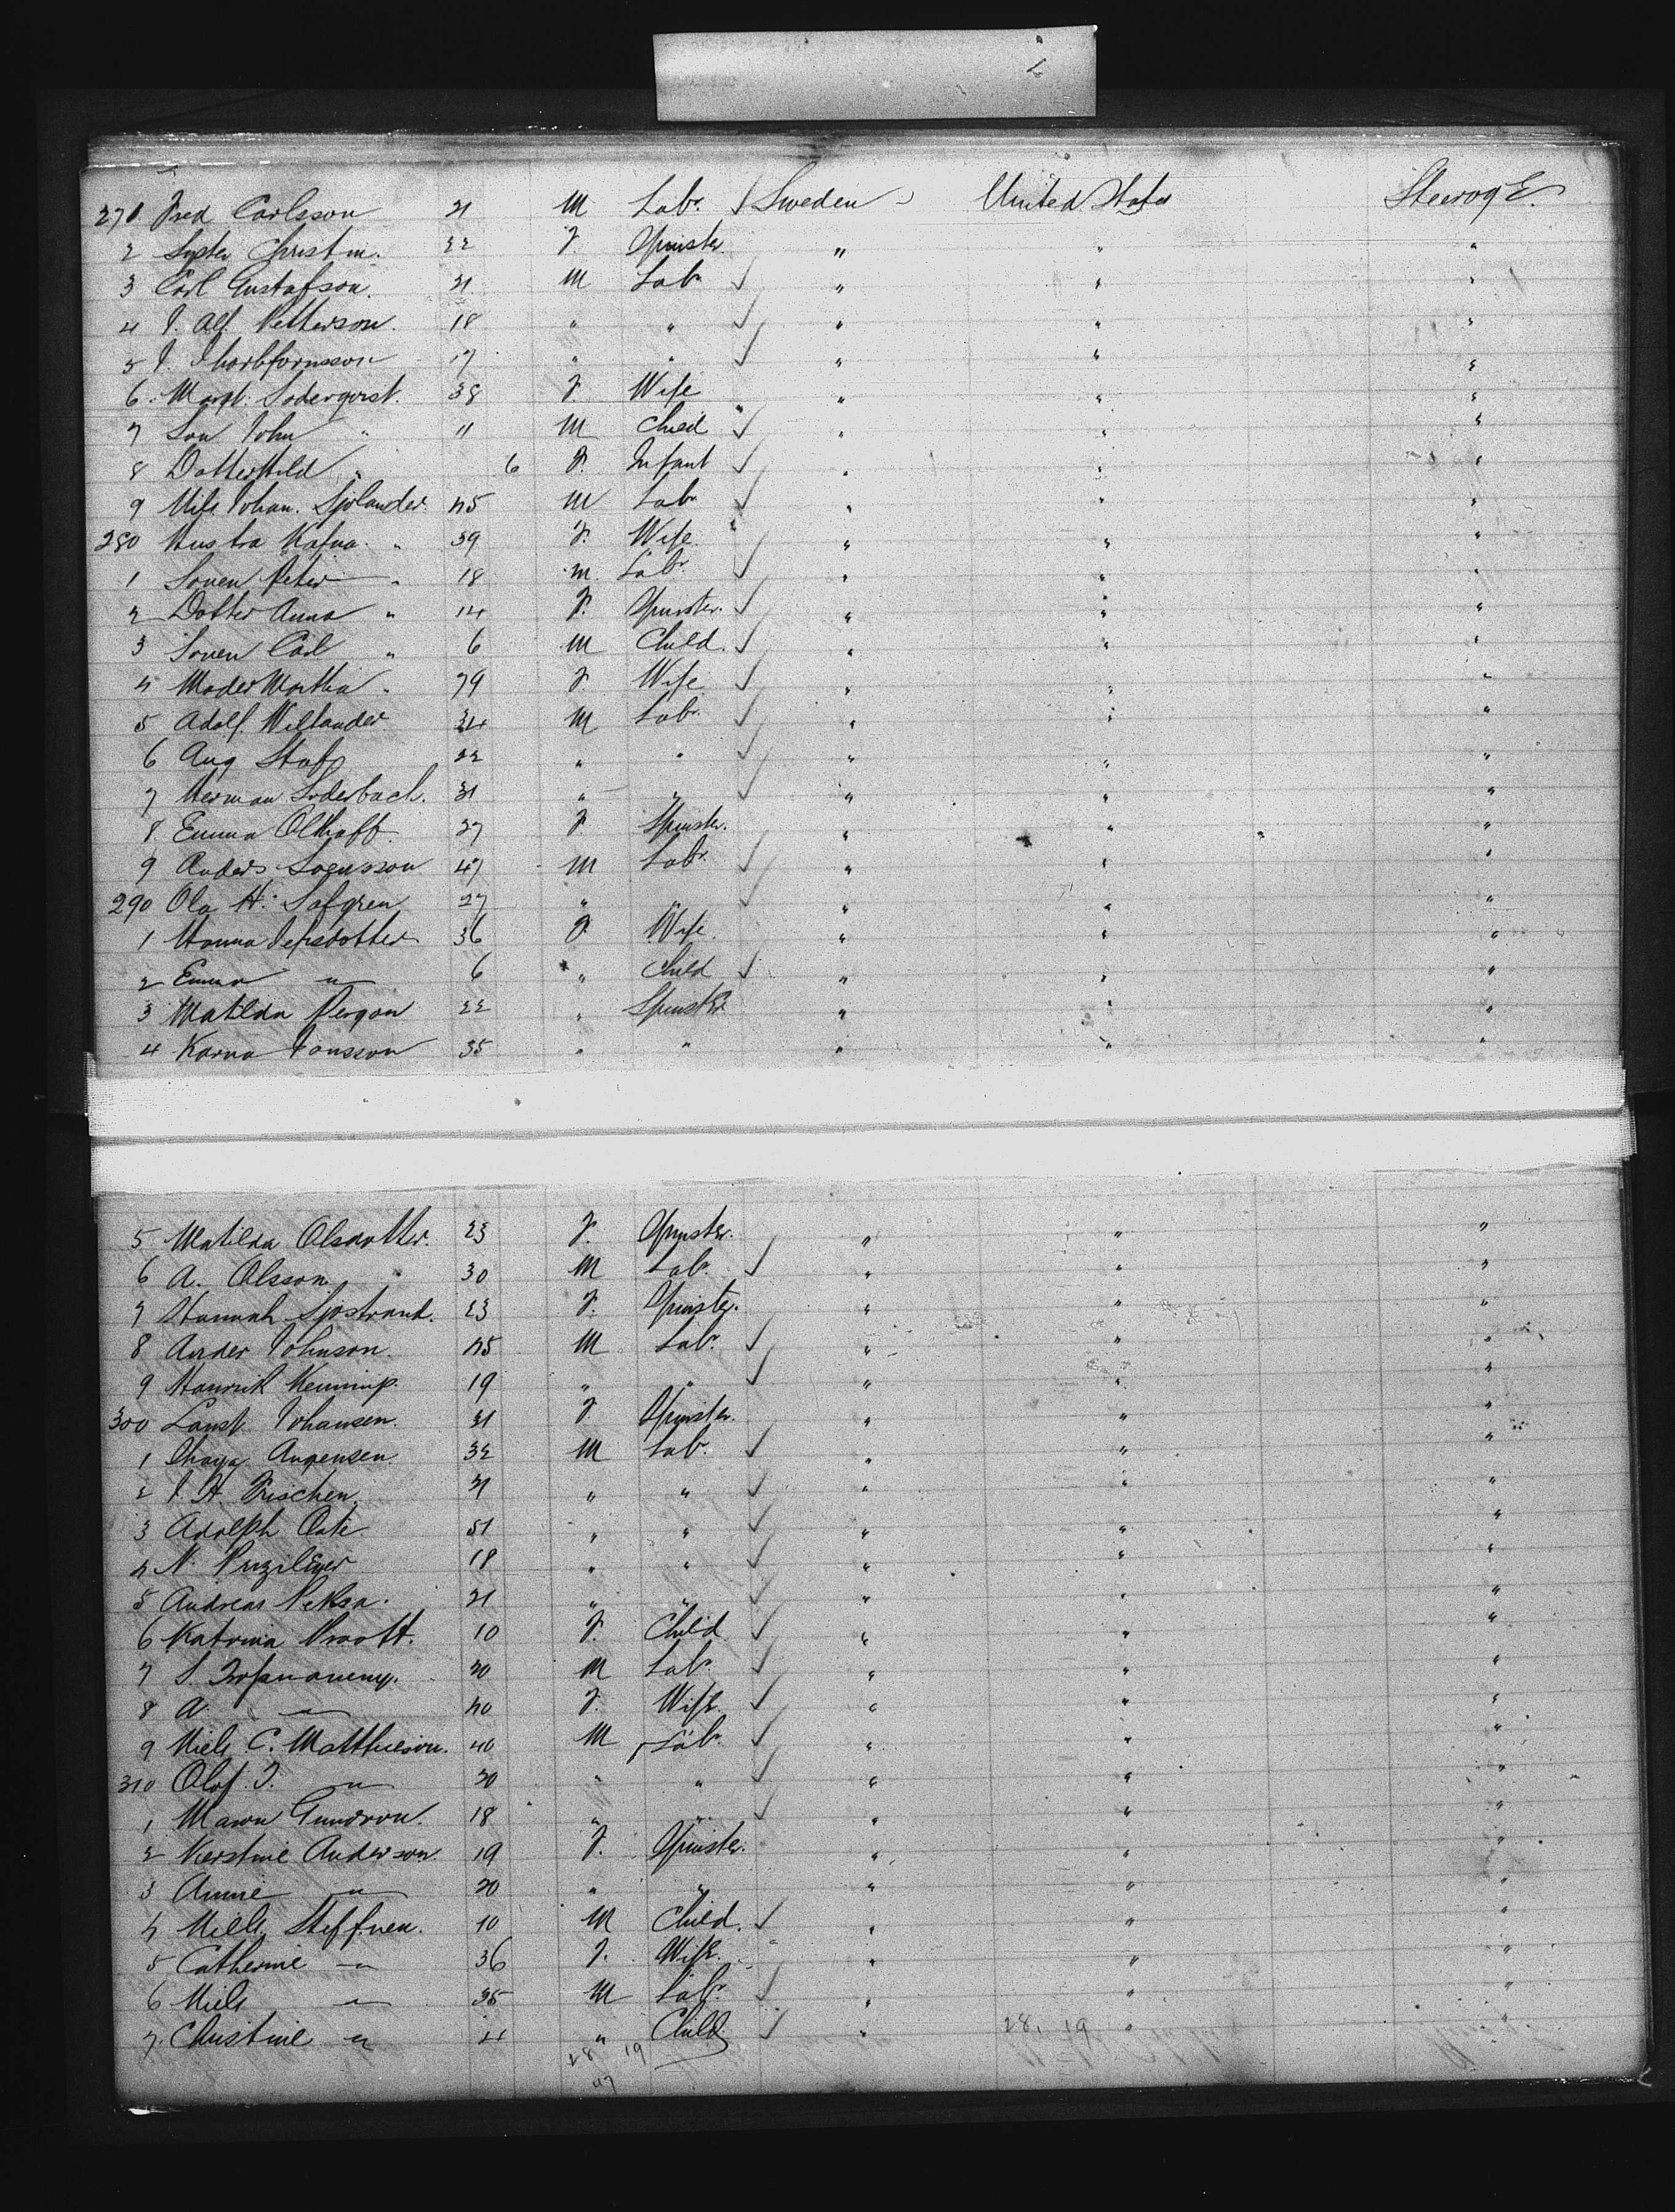 271 Fred Carlsson 21 M Labr Sweden United States Steerage.
2 Syster Christin. 22 F. Spinster " " "
3 Carl Gustafson. 21 M Labr " " "
4 J. Alf. Petterson. 18 " " " " "
5 J. Thorbfornsson 17 " " " " "
6 Margt. Soderqvist. 38 F. Wife " " "
7 Son John " 11 M Child " " "
8 Dotter Hild " 6 F. Infant " " "
9 Nils Johan. Sjolander. 45 M Labr " " "
280 Hustra Kajsa " 39 F. Wife " " "
1 Sonen Peter " 18 M. Labr. " " "
2 Dotter Anna " 14 F. Spinster. " " "
3 Sonen Carl " 6 M Child. " " "
4 Moder Martha " 79 F. Wife " " "
5 Adolf. Willander 34 M Labr. " " "
6 Aug Staf 22 " " " " "
7 Herman Soderbach. 31 " " " " "
8 Emma Olthoff 27 F Spinster. " " "
9 Anders Svensson 47 M Labr. " " "
290 Ola H. Lofgren 27 " " " " "
1 Hanna Jepsdotter 36 F Wife. " " "
2 Emma " 6 " Child " " "
3 Matilda 22 " Spinster " " "
4 Karna Jonsson 35 " " " " "
5 Matilda Olsdotter. 23 F. Spinster. " " "
6 A. Olsson 30 M Labr. " " "
7 Hannah Sjostrand. 23 F. Spinster. " " "
8 Ander Johnson. 45 M Labr. " " "
9 19 " " " " "
300 Johansen. 31 F Spinster. " " "
1 32 M Labr. " " "
2 J. H. Frischen. 21 " " " " "
3 Adolph 51 " " " " "
4 N. 18 " " " " "
5 Andreas Peksa. 21 " " " " "
6 Katrina 10 F. Child " " "
7 S. 20 M Labr. " " "
8 A. " 40 F. Wife. " " "
9 Niels C. Matthieson. 40 M Labr. " " "
310 Olof. J. " 20 " " " " "
1 18 " " " " "
2 Kerstine Anderson. 19 F. Spinster. " " "
3 Annie " 20 " " " " "
4 Niels. Steffnen. 10 M Child. " " "
5 Catherine " 36 F. Wife. " " "
6 Niels " 35 M Labr. " " "
7. Christine " 4 " Child " 28, 19 " "
28 19
47